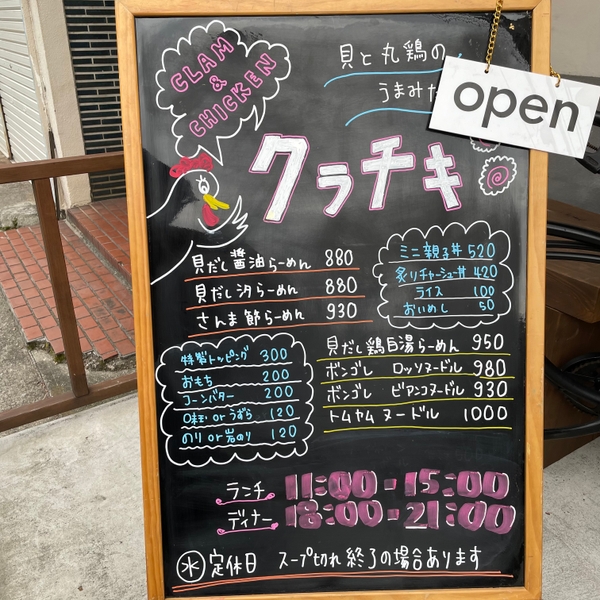 CLAM
&
CHICKEN
貝と丸鶏の
うまみた
open
クラチキ
貝だし醤油らーめん 880
貝だし汐らーめん 880
さんま節らーめん 930
ミニ親子丼 520
炙りチャーシュー丼 420
ライス 100
おいめし 50
貝だし鶏白湯らーめん 950
ボンゴレ ロッソヌードル 980
ボンゴレ ビアンコヌードル 930
トムヤムヌードル 1000
特製トッピング 300
おもち 200
コーンバター 200
味玉 or うずら 120
のり or 岩のり 120
ランチ 11:00-15:00
ディナー 18:00-21:00
水 定休日 スープ切れ終了の場合あります